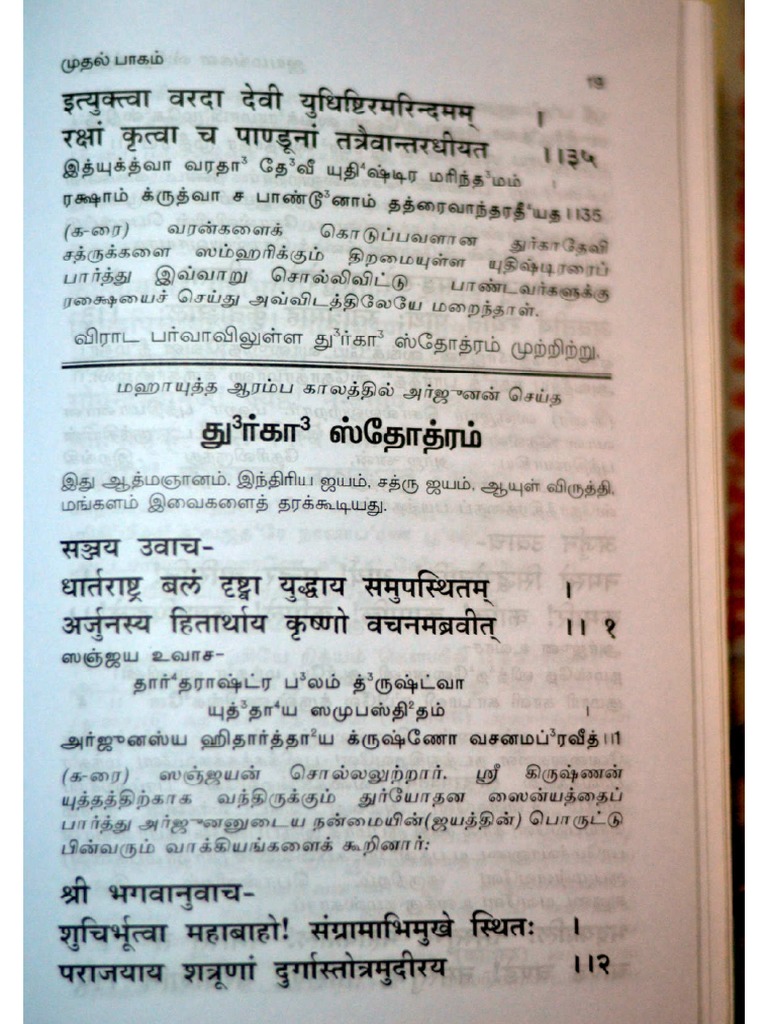 முதல் பாகம்
19
इत्युक्त्वा वरदा देवी युधिष्टिरमरिन्दमम् ।
रक्षां कृत्वा च पाण्डूनां तत्रैवान्तरधीयत ।।३५
இத்யுக்த்வா வரதா³ தே³வீ யுதி⁴ஷ்டிர மரிந்த³மம் ।
ரக்ஷாம் க்ருத்வா ச பாண்டூ³னாம் தத்ரைவாந்தரதீ⁴யத ।।35
(க-ரை) வரன்களைக் கொடுப்பவளான துர்காதேவி
சத்ருக்களை ஸம்ஹரிக்கும் திறமையுள்ள யுதிஷ்டிரரைப்
பார்த்து இவ்வாறு சொல்லிவிட்டு பாண்டவர்களுக்கு
ரக்ஷையைச் செய்து அவ்விடத்திலேயே மறைந்தாள்.
விராட பர்வாவிலுள்ள து³ர்கா³ ஸ்தோத்ரம் முற்றிற்று.
மஹாயுத்த ஆரம்ப காலத்தில் அர்ஜுனன் செய்த
து³ர்கா³ ஸ்தோத்ரம்
இது ஆத்மஞானம். இந்திரிய ஜயம், சத்ரு ஜயம், ஆயுள் விருத்தி,
மங்களம் இவைகளைத் தரக்கூடியது.
सञ्जय उवाच-
धार्तराष्ट्र बलं दृष्ट्वा युद्धाय समुपस्थितम् ।
अर्जुनस्य हितार्थाय कृष्णो वचनमब्रवीत् ।। १
ஸஞ்ஜய உவாச-
தார்⁴தராஷ்ட்ர ப³லம் த்³ருஷ்ட்வா
யுத்³தா⁴ய ஸமுபஸ்தி²தம் ।
அர்ஜுனஸ்ய ஹிதார்த்தா²ய க்ருஷ்ணோ வசனமப்³ரவீத்।।1
(க-ரை) ஸஞ்ஜயன் சொல்லலுற்றார். ஸ்ரீ கிருஷ்ணன்
யுத்தத்திற்காக வந்திருக்கும் துர்யோதன ஸைன்யத்தைப்
பார்த்து அர்ஜுனனுடைய நன்மையின்(ஜயத்தின்) பொருட்டு
பின்வரும் வாக்கியங்களைக் கூறினார்:
श्री भगवानुवाच-
शुचिर्भूत्वा महाबाहो! संग्रामाभिमुखे स्थितः ।
पराजयाय शत्रूणां दुर्गास्तोत्रमुदीरय ।।२